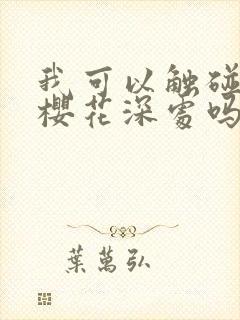 我可以触碰
櫻花深處吗
葉萬弘